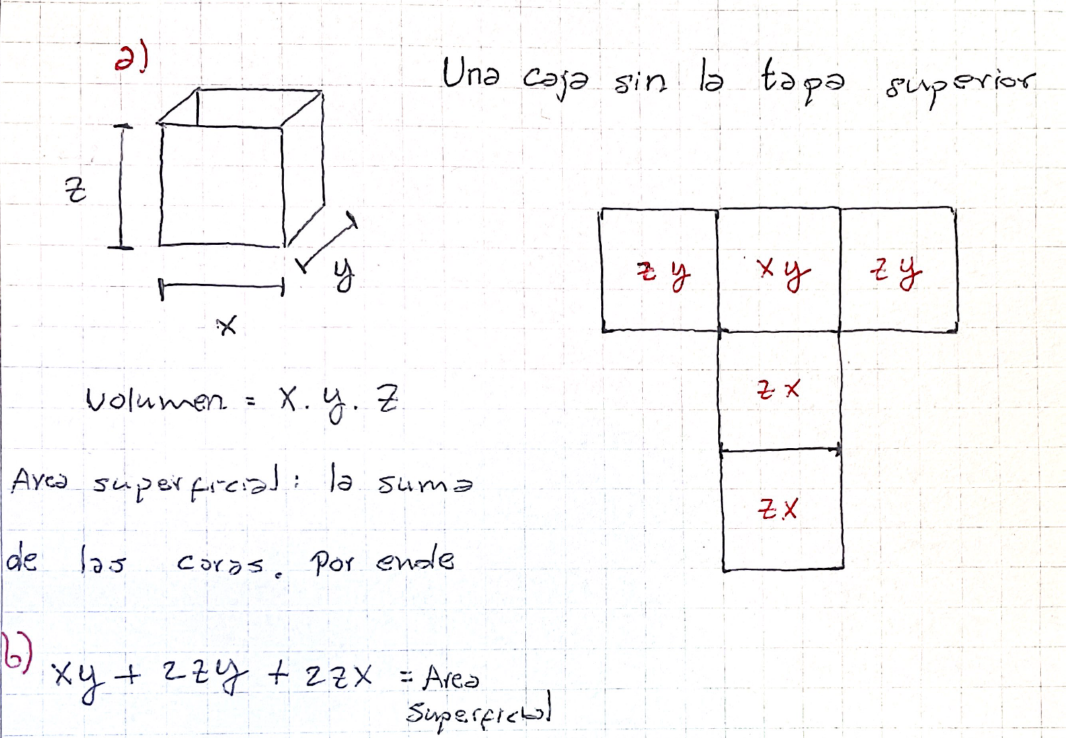 a)
Una caja sin la tapa superior
z
y
x
zy xy zy
zx
zx
Volumen = x. y. z
Area superficial: la suma
de las caras. Por ende
b)
xy + 2zy + 2zx = Area
superficial